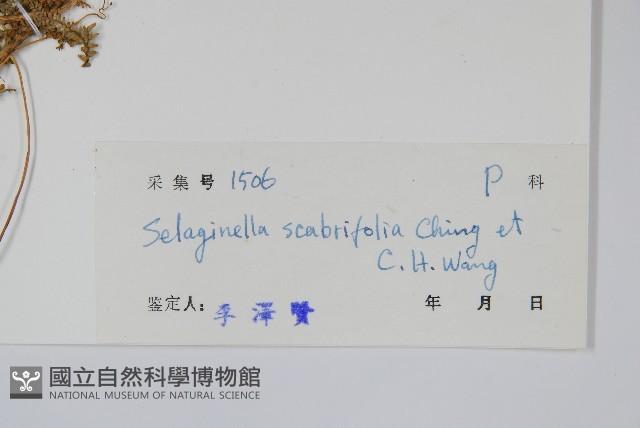 采集号 1506 P 科
Selaginella scabrifolia Ching et
C. H. Wang
鉴定人: 李泽贤 年 月 日
國立自然科學博物館
NATIONAL MUSEUM OF NATURAL SCIENCE